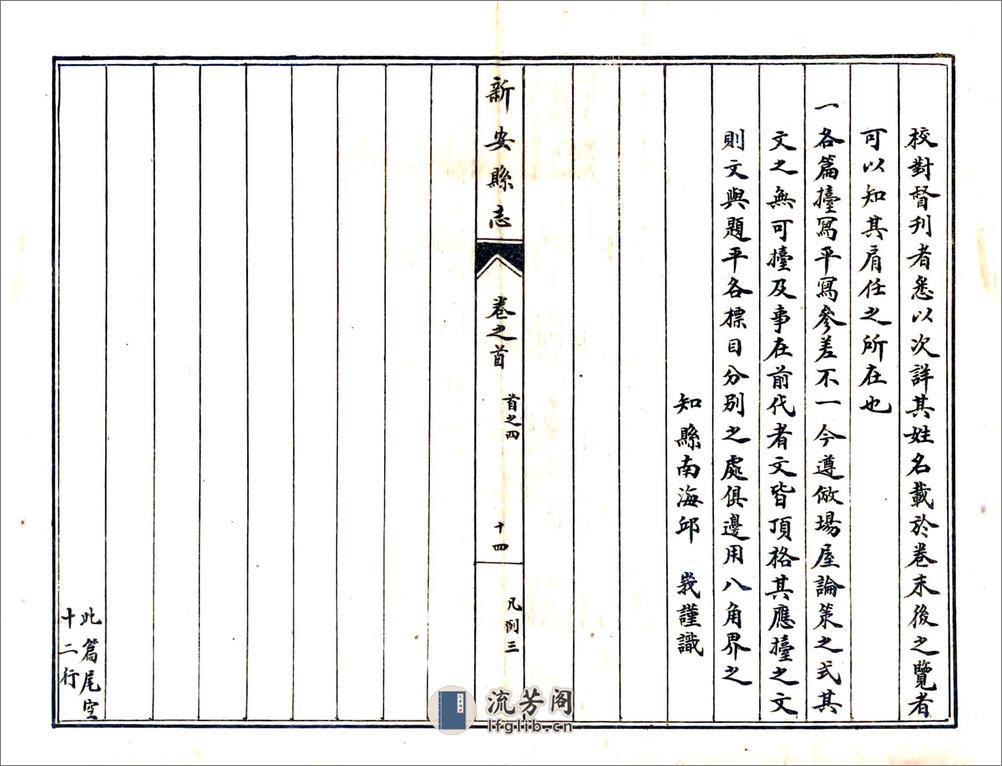 校對督刋者悉以次詳其姓名載於卷末後之覽者
可以知其肩任之所在也
一各篇擡寫平寫參差不一今遵倣場屋論策之式其
文之無可擡及事在前代者文皆頂格其應擡之文
則文與題平各標目分別之處俱邊用八角界之
知縣南海邱 峩謹識
新安縣志
卷之首
首之四
十四
凡例三
此篇尾空
十二行
流芳阁
lfglib.cn